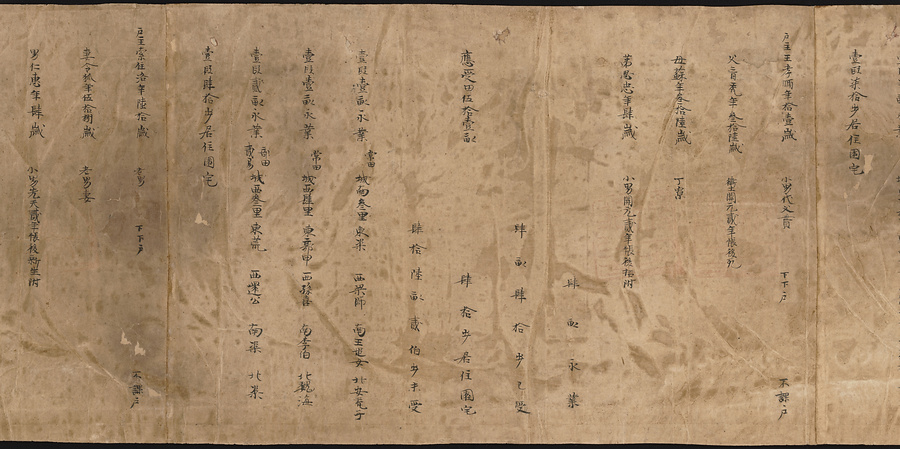 壹段柒拾步居住園宅
户主王孝順年拾壹歲 小男代父貫 下下户 不課户
父盲禿年叁拾陸歲 衛士開元貳年帳後死
母蘇年叁拾陸歲 丁寡
弟思忠年肆歲 小男開元貳年帳後括附
肆畝永業
肆畝肆拾步已受
應受田伍拾壹畝 肆拾步居住園宅
肆拾陸畝貳伯步未受
壹段壹畝永業 常田 城南叁里 東渠 西渠師 南王進 北安
壹段壹畝永業 常田 城西肆里 東 西 南李伯 北魏海
壹段貳畝永業 城西叁里 東荒 西還公 南渠 北渠
壹段肆拾步居住園宅
户主索住洛年陸拾歲 老男 下下户 不課户
妻令狐年伍拾捌歲 老男妻
男仁惠年肆歲 小男先天貳年帳後新生附